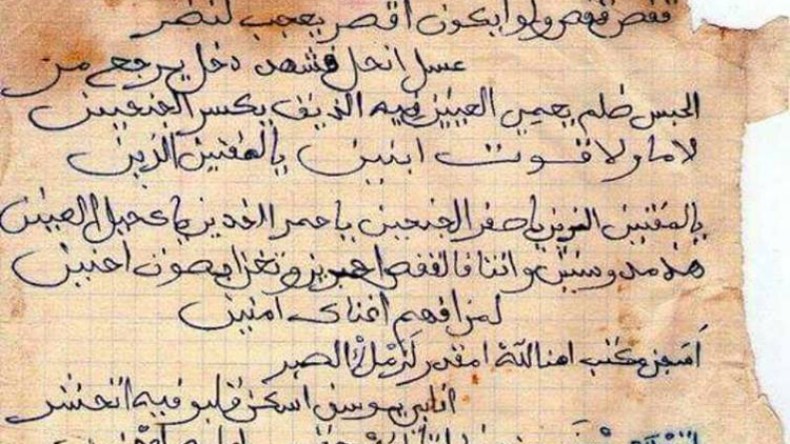 قفص قفص ولو ايكون اقصر يعجب لنضر
عسل انحل فشهد دخل يرجع مر
الحبس ظلم يعمي العينين فيه الذيق يكسر الجنحين
لا ما ولا قوت ابنين يالمقنين الزين
يالمقنين الزين ياصفر الجنحين ياحمر الخدين يا كحيل العينين
هذ مد وسنين وانتا فالقفص احزين تغني بصوت احنين
لمن افهم اغناك امنين
امسجن مكتب اهنا الله امقدر لزملك الصبر
انا بي يوسف اسكن قلبو فيه اتحشر